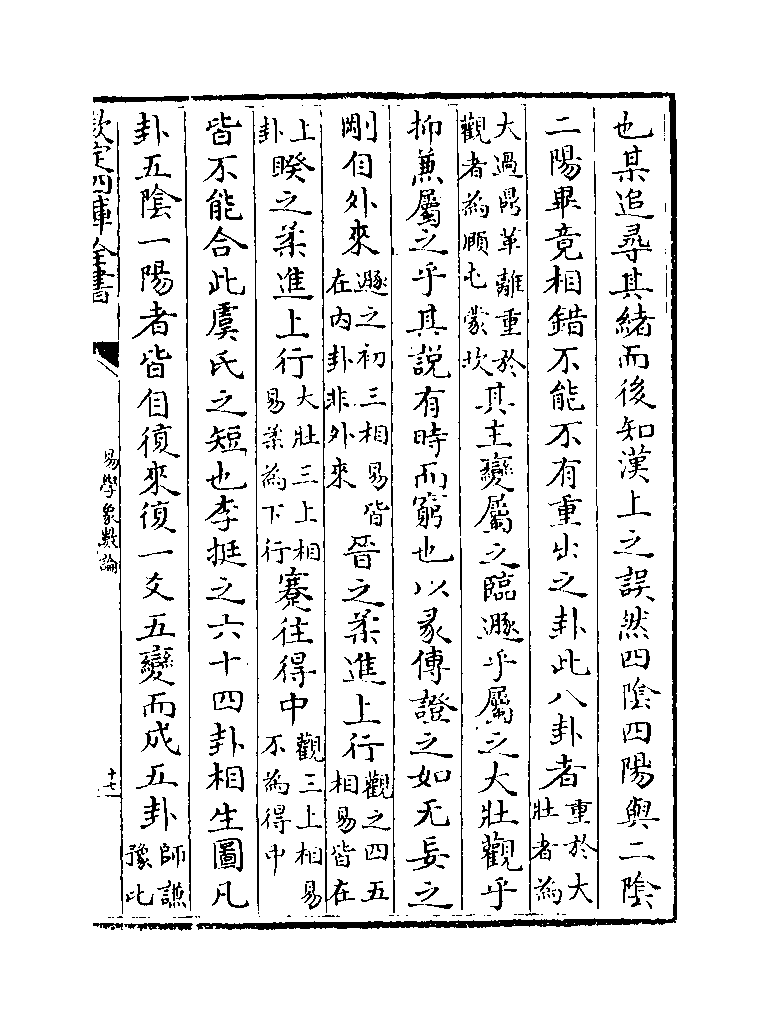 也某追尋其緒而後知漢上之誤然四陰四陽與二陰
二陽畢竟相錯不能不有重出之卦此八卦者重於大壯者為
大過鼎革離重於觀者為頤屯蒙坎其主變屬之臨遯乎屬之大壯觀乎
抑兼屬之乎其說有時而窮也以彖傳證之如无妄之
剛自外來遯之初三相易皆在内卦非外來晉之柔進上行觀之四五相易皆在
上卦睽之柔進上行大壯三上相易柔為下行蹇往得中觀三上相易不為得中
皆不能合此虞氏之短也李挺之六十四卦相生圖凡
卦五陰一陽者皆自復來復一爻五變而成五卦師謙豫比
欽定四庫全書
易學象數論
十七